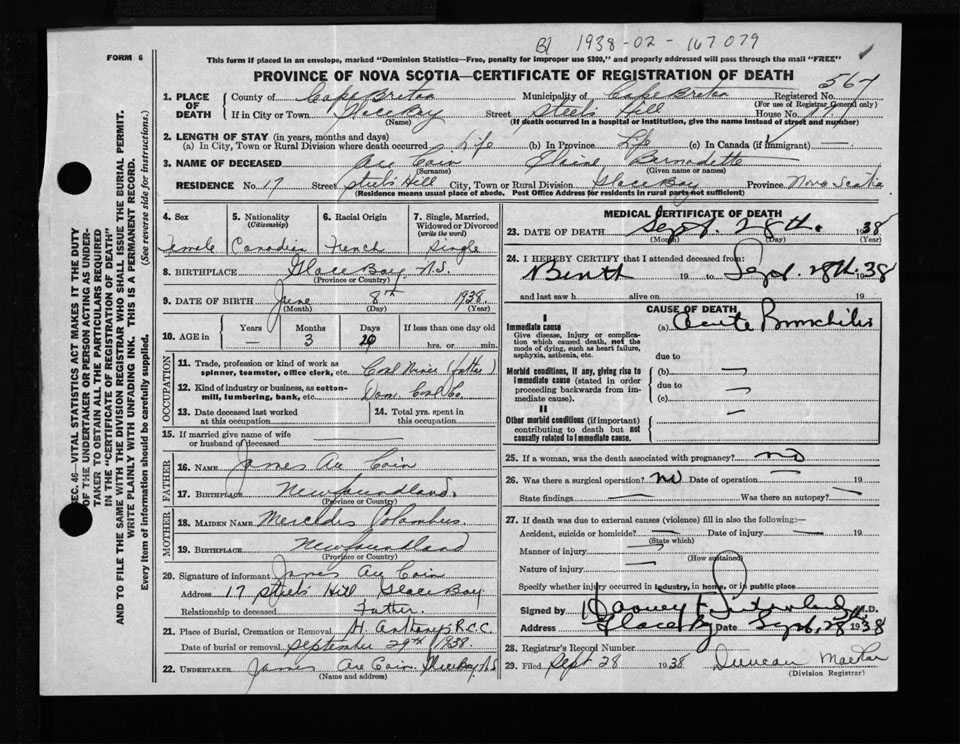 1938-02-167079
FORM 6
This form if placed in an envelope, marked "Dominion Statistics—Free, penalty for improper use $300," and properly addressed will pass through the mail "FREE"
PROVINCE OF NOVA SCOTIA—CERTIFICATE OF REGISTRATION OF DEATH
567
1. PLACE OF DEATH County of Cape Breton Municipality of Cape Breton Registered No.
(For use of Registrar General only)
If in City or Town Glace Bay Street Steels Hill House No. 17
(Name) (If death occurred in a hospital or institution, give the name instead of street and number)
2. LENGTH OF STAY (in years, months and days)
(a) In City, Town or Rural Division where death occurred Life (b) In Province Life (c) In Canada (if immigrant) —
3. NAME OF DECEASED Au Coin Elaine Bernadette
(Surname) (Given name or names)
RESIDENCE No. 17 Street Steels Hill City, Town or Rural Division Glace Bay Province Nova Scotia
(Residence means usual place of abode. Post Office Address for residents in rural parts not sufficient)
4. Sex
Female
5. Nationality
(Citizenship)
Canadian
6. Racial Origin
French
7. Single, Married, Widowed or Divorced
(write the word)
Single
8. BIRTHPLACE Glace Bay N.S.
(Province or Country)
9. DATE OF BIRTH June 8th 1938.
(Month) (Day) (Year)
10. AGE in
Years Months Days If less than one day
— 3 20 hrs. or min.
OCCUPATION
11. Trade, profession or kind of work as
spinner, teamster, office clerk, etc. Coal Miner (father)
12. Kind of industry or business, as cotton-
mill, lumbering, bank, etc. Dom. Coal Co.
13. Date deceased last worked
at this occupation
14. Total yrs. spent in
this occupation
15. If married give name of wife
or husband of deceased
FATHER
16. NAME James Au Coin
17. BIRTHPLACE Newfoundland.
(Province or Country)
MOTHER
18. MAIDEN NAME Mercedes Columbus.
19. BIRTHPLACE Newfoundland
(Province or Country)
20. Signature of informant James Au Coin
Address 17 Steels Hill Glace Bay
Relationship to deceased Father.
21. Place of Burial, Cremation or Removal St. Anthonys R.C.C.
Date of burial or removal September 29th 1938.
22. UNDERTAKER James Au Coin. Glace Bay N.S.
(Name and address)
MEDICAL CERTIFICATE OF DEATH
23. DATE OF DEATH Sept. 28th. 1938
(Month) (Day) (Year)
24. I HEREBY CERTIFY that I attended deceased from:
Birth 19 to Sept. 28th. 1938
and last saw h alive on 19
CAUSE OF DEATH
I
Immediate cause (a) Acute Bronchitis
Give disease, injury or complica-
tion which caused death, not the
mode of dying, such as heart failure,
asphyxia, asthenia, etc. due to
Morbid conditions, if any, giving rise to (b) —
immediate cause (stated in order due to
proceeding backwards from im-
mediate cause). (c) —
II
Other morbid conditions (if important)
contributing to death but not
causally related to immediate cause.
25. If a woman, was the death associated with pregnancy? no
26. Was there a surgical operation? no Date of operation — 19
State findings — Was there an autopsy? —
27. If death was due to external causes (violence) fill in also the following:—
Accident, suicide or homicide? — Date of injury — 19
(State which)
Manner of injury —
(How sustained)
Nature of injury —
Specify whether injury occurred in industry, in home, or in public place
Signed by Harvey F. Sutherland M.D.
Address Glace Bay Date Sept. 28th. 1938
28. Registrar's Record Number
29. Filed Sept 28 1938 Duncan
(Division Registrar)
SEC. 46—VITAL STATISTICS ACT MAKES IT THE DUTY
OF THE UNDERTAKER OR PERSON ACTING AS UNDER-
TAKER TO OBTAIN ALL THE PARTICULARS REQUIRED
IN THE "CERTIFICATE OF REGISTRATION OF DEATH"
AND TO FILE THE SAME WITH THE DIVISION REGISTRAR WHO SHALL ISSUE THE BURIAL PERMIT.
WRITE PLAINLY WITH UNFADING INK. THIS IS A PERMANENT RECORD.
Every item of information should be carefully supplied. (See reverse side for instructions.)